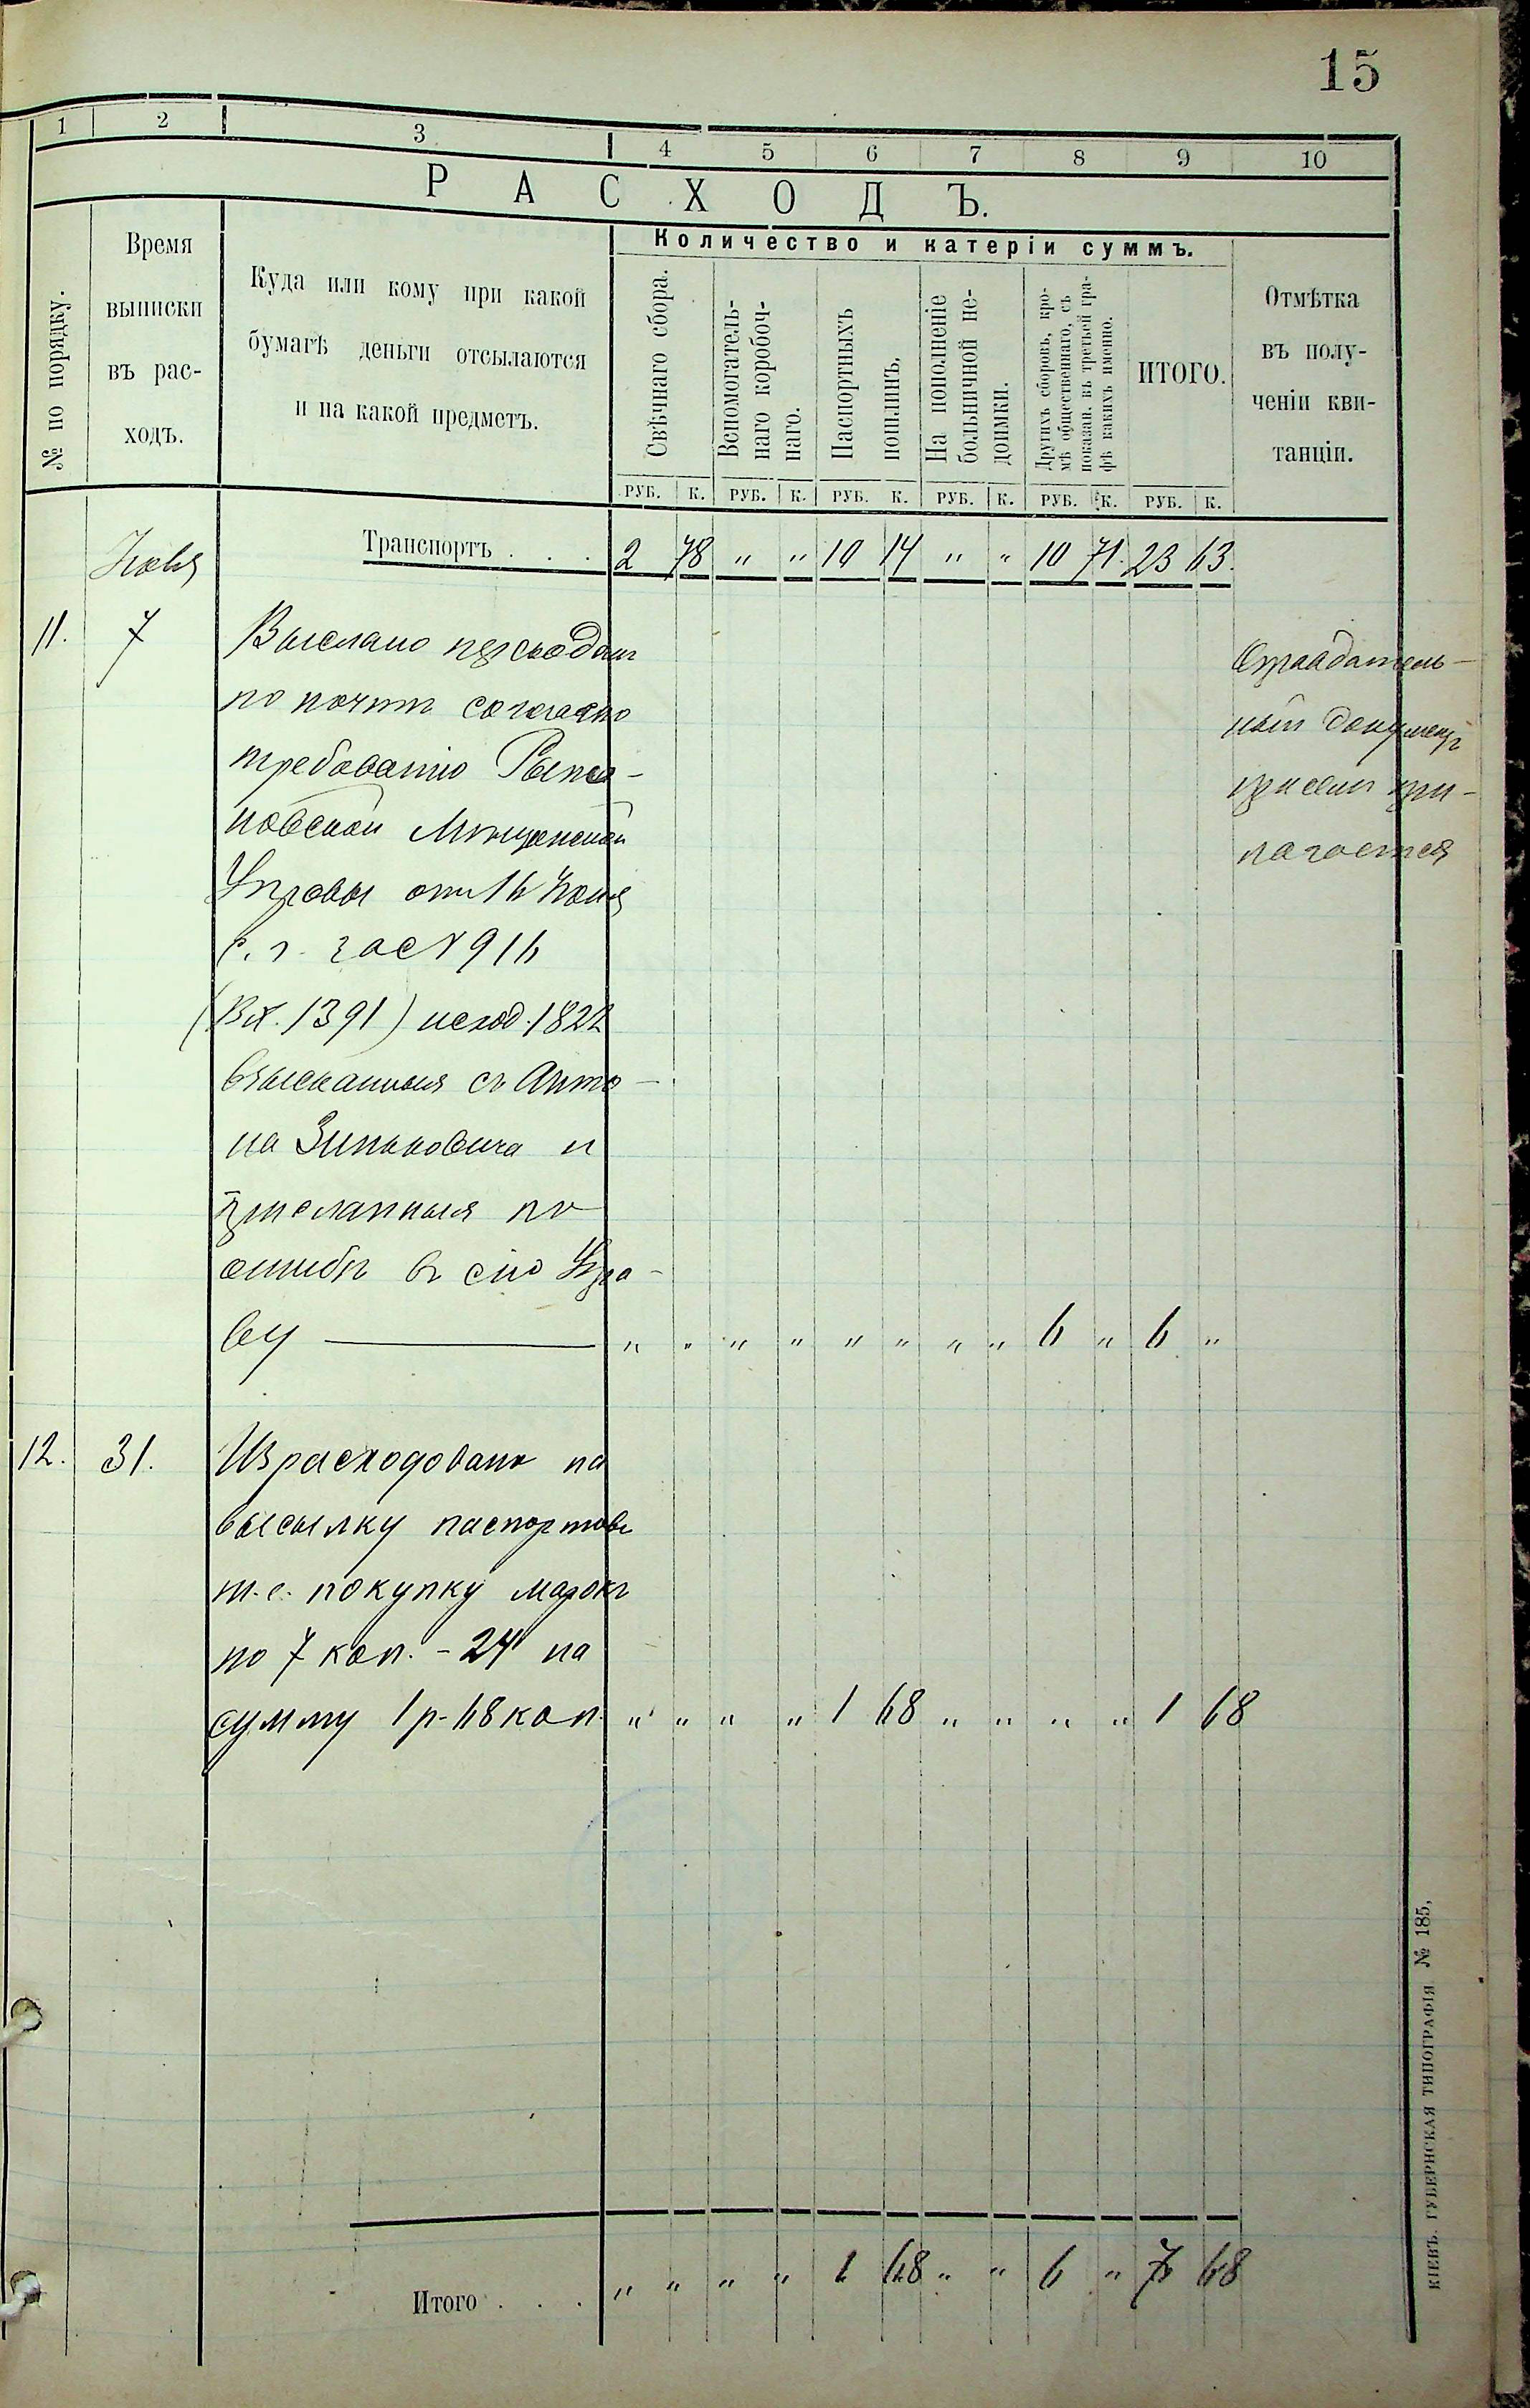 15
1 2 3 4 5 6 7 8 9 10
РАСХОДЪ.
№ по порядку.
Время
выписки
въ рас-
ходъ.
Куда или кому при какой
бумагѣ деньги отсылаются
и на какой предметъ.
Количество и катеріи суммъ.
Свѣчнаго сбора.
Вспомогатель-
наго коробоч-
наго.
Паспортныхъ
пошлинъ.
На пополненіе
больничной не-
доимки.
Другихъ сборовъ, кро-
мѣ общественнаго, съ
показан. въ третьей гра-
фѣ какихъ именно.
ИТОГО.
Отмѣтка
въ полу-
ченіи кви-
танціи.
РУБ. К. РУБ. К. РУБ. К. РУБ. К. РУБ. К. РУБ. К.
Транспортъ . . . 2 78 " " 10 14 " " 10 71. 23 63.
11. 7 Выслано переводом
по почтѣ согласно
требованію
Мѣщанской
Управы отъ 16 Іюня
с. г. за № 916
(Вх. 1391) исход. 1822
взысканныя съ Анто-
на Зиньковича и
присланныя по
ошибкѣ въ сію Упра-
ву " " " " " " " " 6 " 6 "
Оправдатель-
ный документъ
при семъ при-
лагается
12. 31. Израсходовано на
высылку паспортовъ
т.е. покупку марокъ
по 7 коп. - 24 на
сумму 1 р. 68 коп. " " " " 1 68 " " " " 1 68
Итого . . . " " " " 1 68 " " 6 " 7 68
КІЕВЪ. ГУБЕРНСКАЯ ТИПОГРАФІЯ № 185,